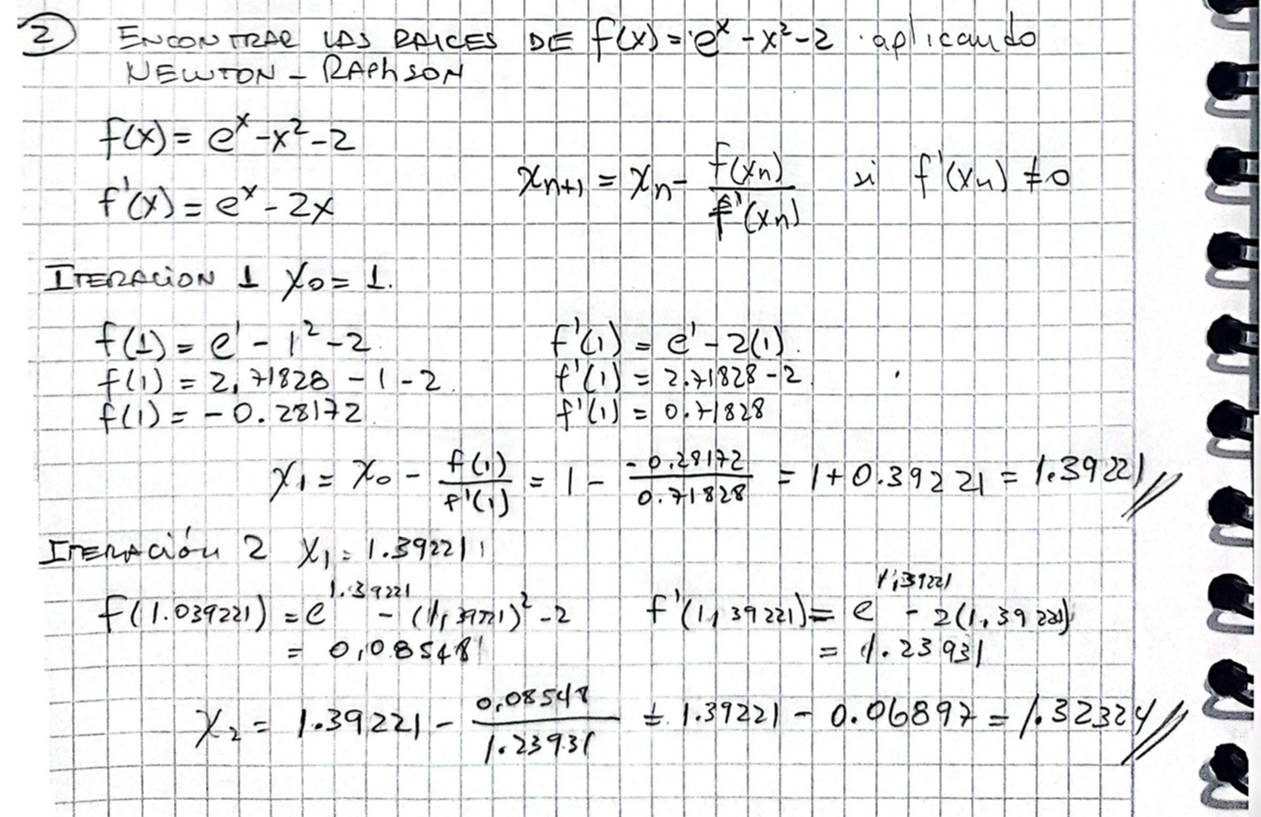 2 ENCONTRAR LAS RAICES DE f(x) = e^x - x² - 2 aplicando
NEWTON - RAPHSON
f(x) = e^x - x² - 2
f'(x) = e^x - 2x
x_{n+1} = x_n - f(x_n) / f'(x_n) si f'(x_n) ≠ 0
ITERACION 1 X_0 = 1.
f(1) = e^1 - 1² - 2
f(1) = 2,71828 - 1 - 2
f(1) = -0.28172
f'(1) = e^1 - 2(1).
f'(1) = 2.71828 - 2
f'(1) = 0.71828
X_1 = X_0 - f(1) / f'(1) = 1 - -0.28172 / 0.71828 = 1 + 0.39221 = 1.39221 //
ITERACIÓN 2 X_1 = 1.39221
f(1.039221) = e^{1.39221} - (1,39221)² - 2
= 0,08548
f'(1,39221) = e^{1,39221} - 2(1,39221)
= 1.23931
X_2 = 1.39221 - 0,08548 / 1.23931 = 1.39221 - 0.06897 = 1.32324 //